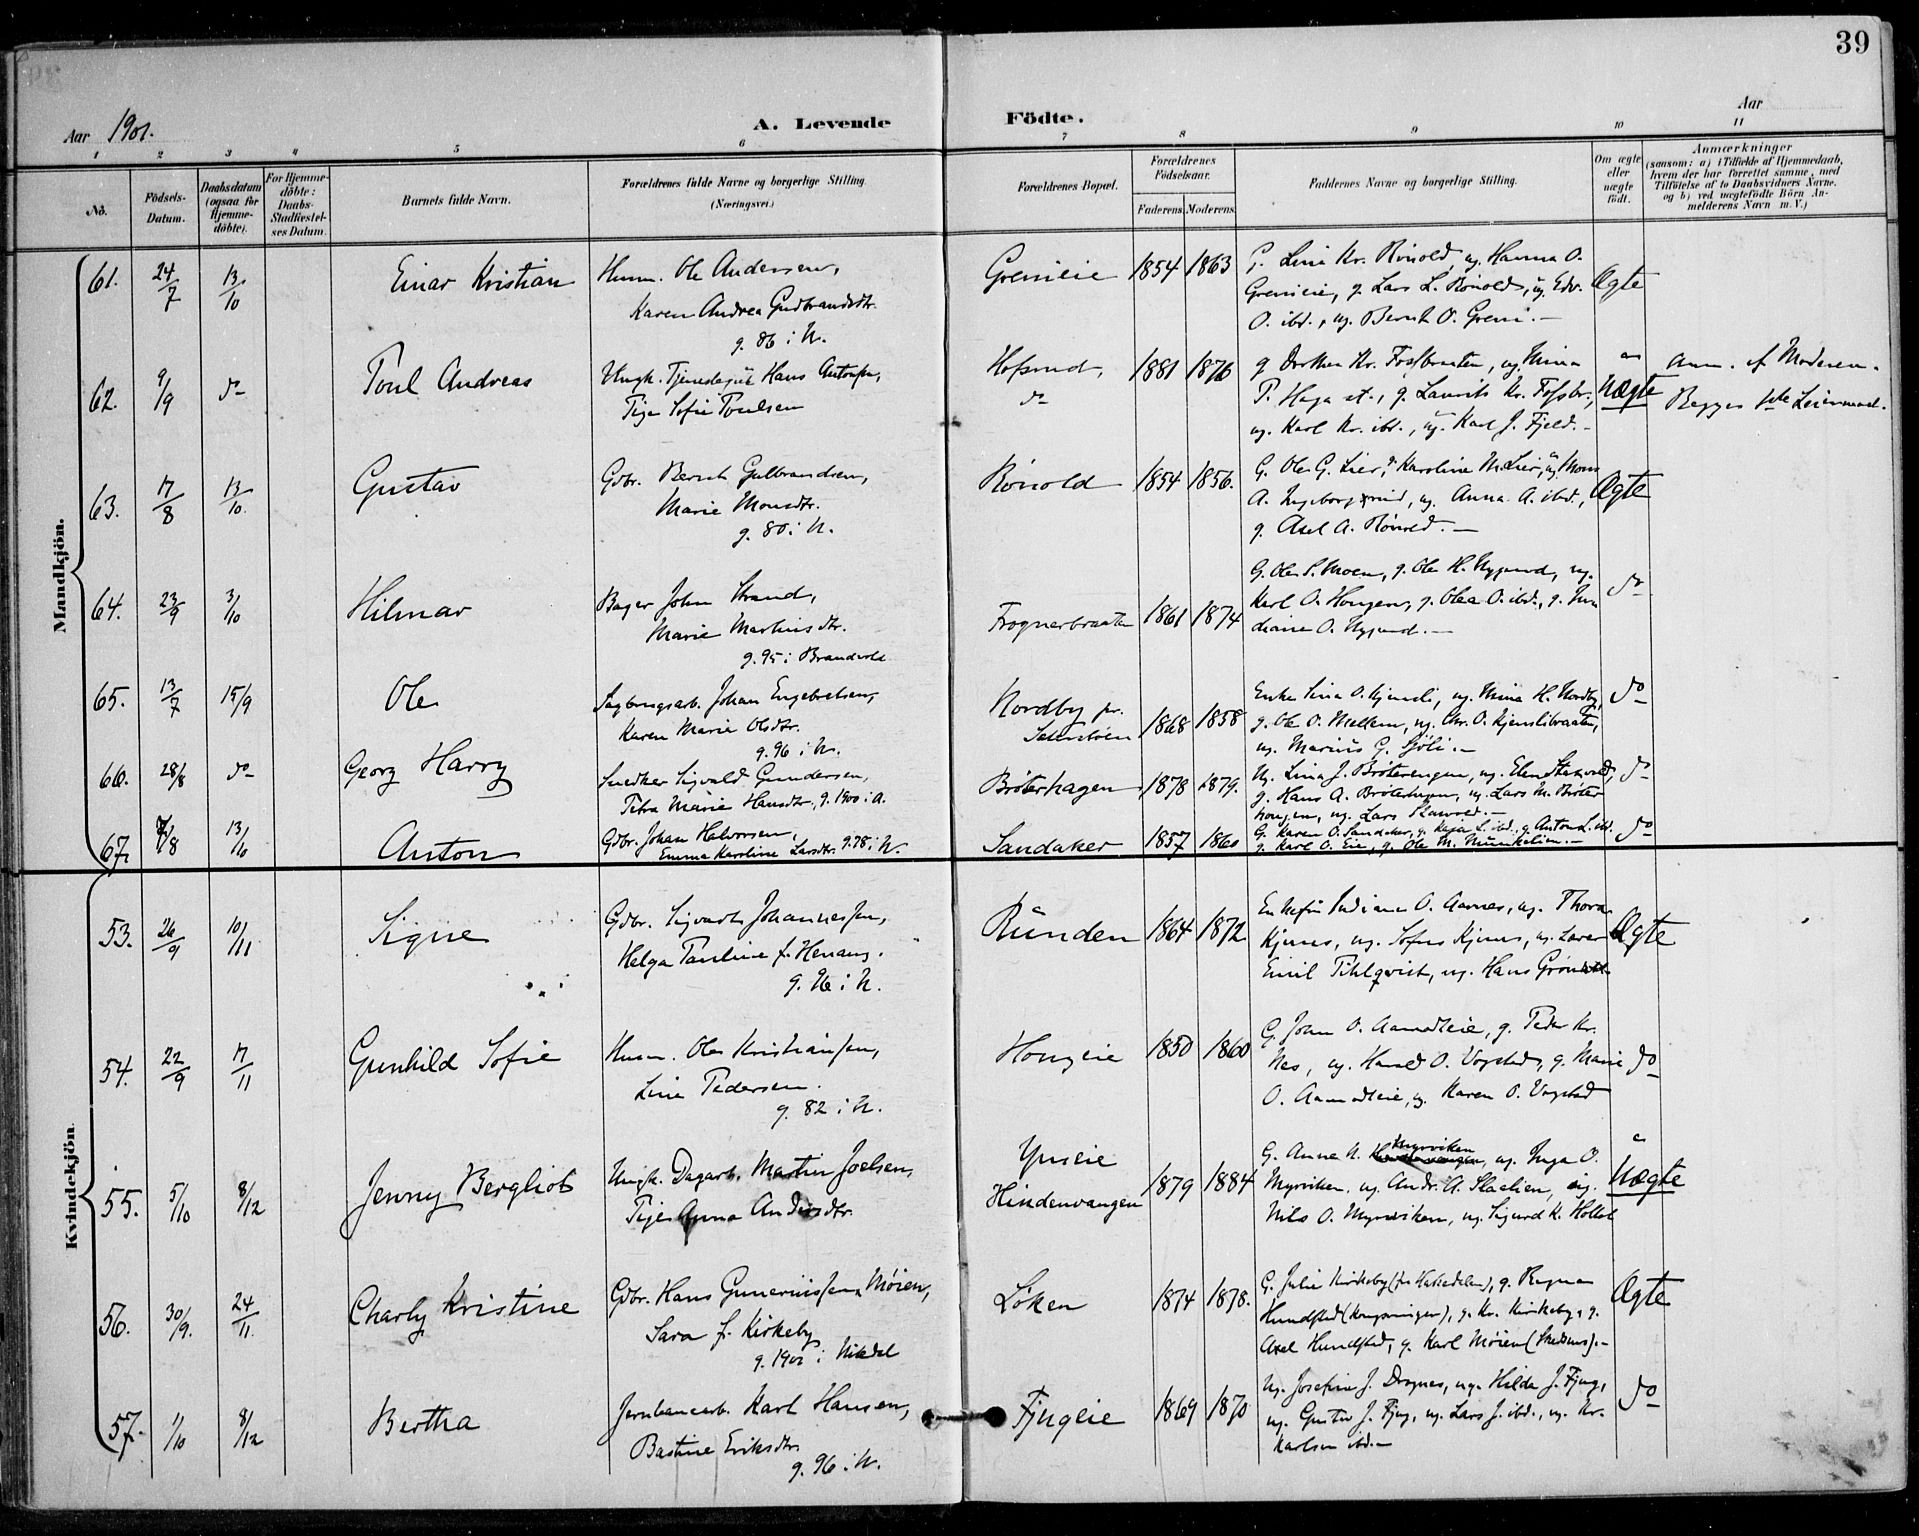 39
Aar 1901.
A. Levende Födte.
Aar
1 2 3 4 5 6 7 8 9 10 11
No.
Födsels-Datum.
Daabsdatum (ogsaa for Hjemmedöbte).
For Hjemmedöbte: Daabs-Stadfæstelses Datum.
Barnets fulde Navn.
Forældrenes fulde Navne og borgerlige Stilling.
(Næringsvei.)
Forældrenes Bopæl.
Forældrenes Födselsaar.
Faderens. Moderens.
Faddernes Navne og borgerlige Stilling.
Om ægte eller uægte födt.
Anmærkninger
(saasom: a) i Tilfælde af Hjemmedaab, hvem der har forrettet samme, med Tilföielse af to Daabsvidners Navne. og b) ved uægtefödte Börn Anmelderens Navn m. V.)
Mandkjön.
61. 24/7 13/10 Einar Kristian Husm. Ole Andersen, Grenieie 1854 1863 G. Lina Kr. Rönold, ug. Hanna O. Ægte
Karen Andrea Gudbrandsdtr. Grenieie, g. Lars L. Rönold, ug. Edv.
g. 86 i N. O. ibd., ug. Bernt O. Greni.—
62. 9/9 do Poul Andreas Ungk. Tjenestegut Hans Antonsen, Hofsrud, 1881 1876 g Dorthea Kr. Fossbraaten, ug. Mina Uægte Anm. af Moderen.
Pige Sofie Poulsen do P. Haga st., g. Laurits Kr. Fossbr., Begges 1ste Leiermaal.
ug. Karl Kr. ibd., ug. Karl J. Fjeld.—
63. 17/8 13/10 Gustav Gdbr. Bernt Gulbrandsen, Rönold 1854 1856. G. Ole G. Lier, g. Karoline M. Lier, ug Mons Ægte
Marie Monsdtr. A. Ingeborgsrud, ug. Anna A. ibd.,
g. 80 i N. g. Axel A. Rönold.—
64. 23/9 3/10 Hilmar Bager John Strand, Frognerbraaten 1861 1874 G. Ole P. Moen, g. Ole H. Nygaard, ug. do
Marie Martinsdtr. Karl O. Hougen, g. Olea O. ibd., g. Indiane O. Nygaard.—
g. 95 i Brandvold
65. 13/7 15/9 Ole Sagbrugsarb. Johan Engebretsen, Nordby pr. 1868 1858 Enke Lina O. Kjensli, ug. Mina H. Nordby, do
Karen Marie Olsdtr. g. Ole O. Mellem, ug. Chr. O. Kjenslibraaten,
g. 96 i N. ug. Marius G. Sjöli.—
66. 28/8 do Georg Harry Snedker Sigvald Gundersen, Bröterhagen 1878 1879. Ug. Lina J. Bröterengen, ug. Elen do
Petra Marie Hansdtr, g. 1900 i A. g. Hans A. Bröterhagen, ug. Lars M. Bröterhougen, ug. Lars
67. 7/8 13/10 Anton Gdbr. Johan Halvorsen, Sandaker 1857 1860 G. Karen O. Sandaker, g. Kaja L. ibd., g. Anton L. ibd. do
Emma Karoline Larsdtr. g. 78 i N. g. Karl O. Eie, g. Ole M. Munkelien.—
Kvindekjön.
53. 26/9 10/11 Signe Gdbr. Sigvart Johannessen, Runden 1864 1872 Enkefru Indiana O. Aarnes, ug. Thora Ægte
Helga Pauline f. Henaug. Kjerns, ug. Sofus Kjerns, ug. Lærer
g. 96 i N. Emil Pihlqvist, ug. Hans
54. 22/9 17/11 Gunhild Sofie Husm. Ole Kristiansen, Hougeie 1850 1860 G. John O. Aamodteie, g. Peder Kr. do
Line Pedersen. Nes, ug. Harald O. Vogstad, g. Marie
g. 82 i N. O. Aamodteie, ug. Karen O. Vogstad
55. 5/10 8/12 Jenny Bergliot Ungk. Dagarb. Martin Joelsen, Yrieie 1879 1884 G. Anne N. Myrviken, ug. Inga O. Uægte
Pige Anna Andersdtr. Hindenvangen Myrviken, ug. Andr. A. Slaalien, ug.
Nils O. Myrviken, ug. Sigurd K. Holtet
56. 30/9. 24/11. Charly Kristine Gdbr. Hans Gunerius(sen) Möien, Löken 1874 1878. G. Julie Kirkeby (fr Hakadalen), g. Ragna Ægte
Sara f. Kirkeby Hundstad (Kongsvinger), g. Kr. Kirkeby, g.
g. 1900 i Nitedal Axel Hundstad, g. Karl Möien (Skedsmo).—
57. 1/10 8/12 Bertha Jernbanearb. Karl Hansen, Fjugeie 1869 1870 Ug. Josefine J. Dragnes, ug. Hilda J. Fjug, do
Bastine Eriksdtr. ug. Gustav J. Fjug, ug. Lars J. ibd., ug. Kr.
g. 96 i N. Karlsen ibd.—